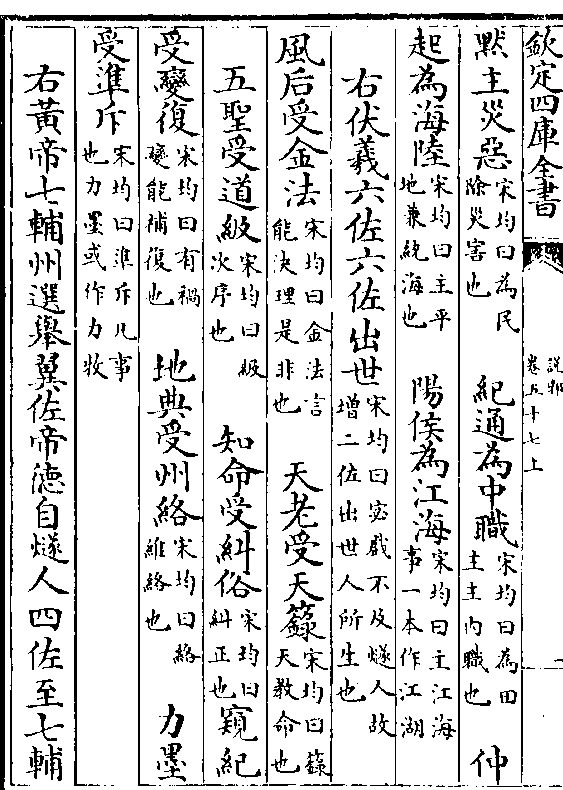 欽定四庫全書
說郛
卷五十七上
黙主災惡宋均曰為民除災害也 紀通為中職宋均曰為田主主内職也 仲
起為海陸宋均曰主平地兼統海也 陽侯為江海宋均曰主江海事一本作江湖
右伏羲六佐六佐出世宋均曰宓戲不及燧人故增二佐出世人所生也
風后受金法宋均曰金法言能決理是非也 天老受天籙宋均曰籙天教命也
五聖受道級宋均曰級次序也 知命受糾俗宋均曰糾正也 窺紀
受變復宋均曰有禍變能補復也 地典受州絡宋均曰絡維絡也 力墨
受準斥宋均曰準斥凡事也力墨或作力牧
右黃帝七輔州選舉翼佐帝德自燧人四佐至七輔